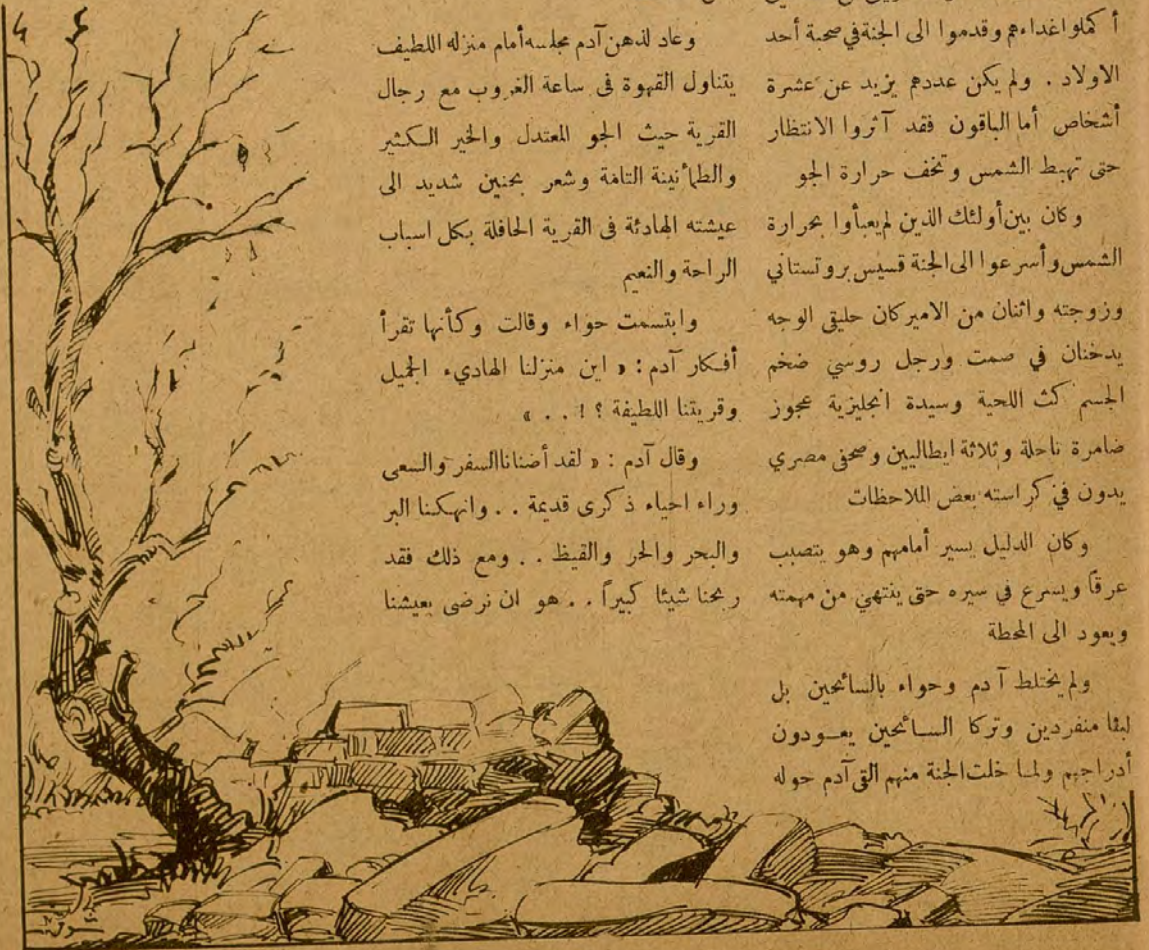 أكملوا غداءهم وقدموا الى الجنة في صحبة أحد
الاولاد . ولم يكن عددهم يزيد عن عشرة
أشخاص أما الباقون فقد آثروا الانتظار
حتى تهبط الشمس وتخف حرارة الجو
وكان بين أولئك الذين لم يعبأوا بحرارة
الشمس وأسرعوا الى الجنة قسيس بروتستاني
وزوجته واثنان من الاميركان حليقى الوجه
يدخنان في صمت ورجل روسي ضخم
الجسم كث اللحية وسيدة انجليزية عجوز
ضامرة ناحلة وثلاثة ايطاليين وصحفى مصري
يدون في كراسته بعض الملاحظات
وكان الدليل يسير أمامهم وهو يتصبب
عرقاً ويسرع في سيره حتى ينتهي من مهمته
ويعود الى المحطة
ولم يختلط آدم وحواء بالسائحين بل
لبثا منفردين وتركا السائحين يعودون
أدراجهم ولما خلت الجنة منهم القى آدم حوله
وعاد لذهن آدم مجلسه أمام منزله اللطيف
يتناول القهوة فى ساعة الغروب مع رجال
القرية حيث الجو المعتدل والخير الكثير
والطمأنينة التامة وشعر بحنين شديد الى
عيشته الهادئة فى القرية الحافلة بكل اسباب
الراحة والنعيم
وابتسمت حواء وقالت وكأنها تقرأ
أفكار آدم : « اين منزلنا الهاديء الجميل
وقريتنا اللطيفة ؟ ! . . »
وقال آدم : « لقد أضنانا السفر والسعى
وراء احياء ذكرى قديمة . . وانهكنا البر
والبحر والحر والقيظ . . ومع ذلك فقد
ربحنا شيئا كبيراً . . هو ان نرضى بعيشنا